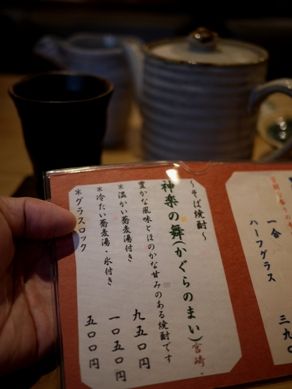 ～そば焼酎～
神楽の舞(かぐらのまい)宮崎
豊かな風味とほのかな甘みのある焼酎です
*温かい蕎麦湯付き 九五〇円
*冷たい蕎麦湯・氷付き 一〇五〇円
*グラスロック 五〇〇円
一合
ハーフグラス